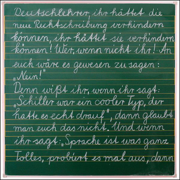 Deutschlehrer, ihr hättet die
neue Rechtschreibung verhindern
können, ihr hättet sie verhindern
können! Wer, wenn nicht ihr! An
euch wäre es gewesen zu sagen:
„Nein!"
Denn wißt ihr, wenn ihr sagt:
„Schiller war ein cooler Typ, der
hatte es echt drauf", dann glaubt
man euch das nicht. Und wenn
ihr sagt, Sprache ist was ganz
Tolles, probiert es mal aus, dann